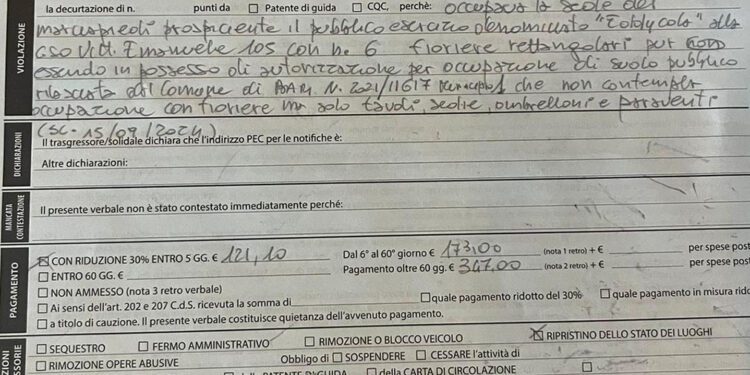 la decurtazione di n. punti da ☐ Patente di guida ☐ CQC, perchè: occupava la sede del
VIOLAZIONE
marciapiedi prospiciente il pubblico esercizio denominato "Teddy cola" alla
C.so Vitt. Emanuele 105 con n. 6 fioriere rettangolari pur non
essendo in possesso di autorizzazione per occupazione di suolo pubblico
rilasciata dal Comune di N. 2021/11617 che non contempla
occupazione con fioriere ma solo tavoli, sedie, ombrelloni e paraventi
(SC. 15/09/2024)
DICHIARAZIONI
Il trasgressore/solidale dichiara che l'indirizzo PEC per le notifiche è:
Altre dichiarazioni:
MANCATA CONTESTAZIONE
Il presente verbale non è stato contestato immediatamente perché:
PAGAMENTO
☒ CON RIDUZIONE 30% ENTRO 5 GG. € 121,10 Dal 6° al 60° giorno € 173,00 (nota 1 retro) + € per spese post
☐ ENTRO 60 GG. € Pagamento oltre 60 gg. € 347,00 (nota 2 retro) + € per spese post
☐ NON AMMESSO (nota 3 retro verbale)
☐ Ai sensi dell'art. 202 e 207 C.d.S. ricevuta la somma di ☐ quale pagamento ridotto del 30% ☐ quale pagamento in misura rid
☐ a titolo di cauzione. Il presente verbale costituisce quietanza dell'avvenuto pagamento.
☐ SEQUESTRO ☐ FERMO AMMINISTRATIVO ☐ RIMOZIONE O BLOCCO VEICOLO ☒ RIPRISTINO DELLO STATO DEI LUOGHI
☐ RIMOZIONE OPERE ABUSIVE Obbligo di ☐ SOSPENDERE ☐ CESSARE l'attività di
PATENTE DI GUIDA ☐ della CARTA DI CIRCOLAZIONE